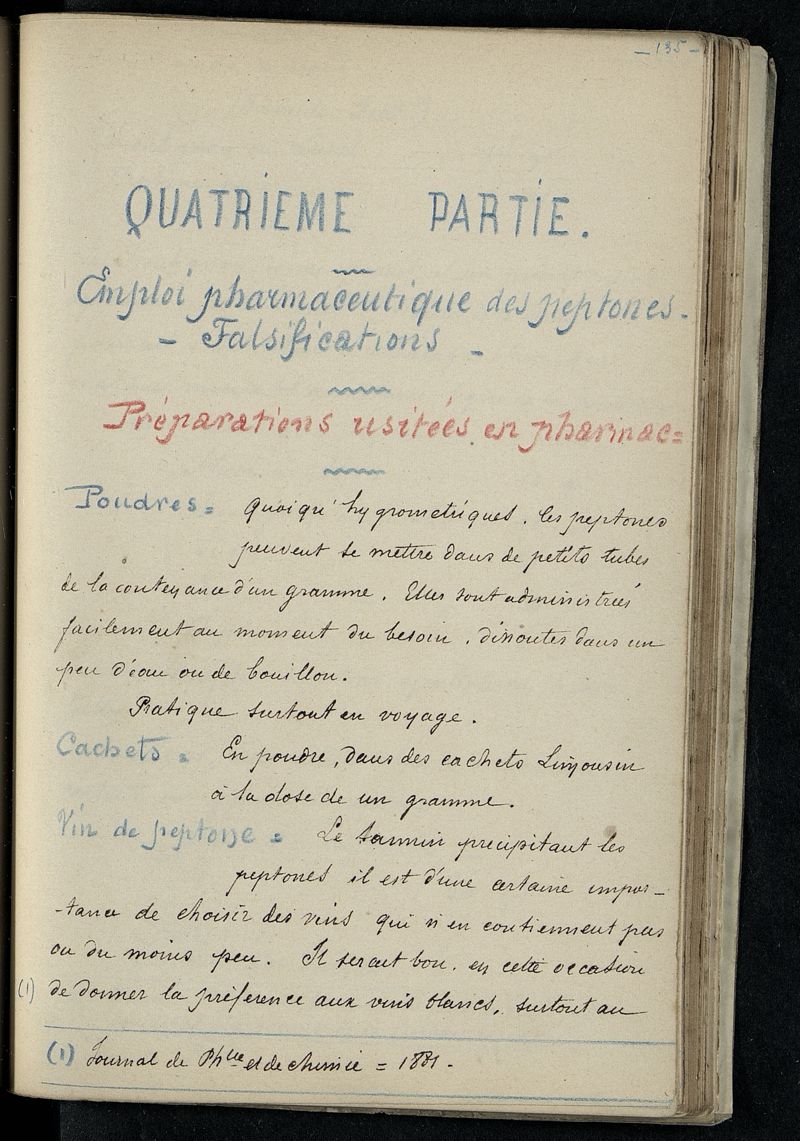 — 135 —
QUATRIEME PARTIE.
Emploi pharmaceutique des peptones.
- Falsifications -
Préparations usitées en pharmac=
Poudres = Quoiqu' hygrometriques, les peptones
peuvent se mettre dans de petits tubes
de la contenance d'un gramme. Elles sont administrées
facilement au moment du besoin, dissoutes dans un
peu d'eau ou de bouillon.
Pratique surtout en voyage.
Cachets = En poudre, dans des cachets Limousin
à la dose de un gramme.
Vin de peptone = Le tannin précipitant les
peptones il est d'une certaine impor-
-tance de choisir des vins qui n'en contiennent pas
ou du moins peu. Il serait bon, en cette occasion
(1) de donner la préference aux vins blancs, surtout au
(1) Journal de Phcie et de chimie = 1881.